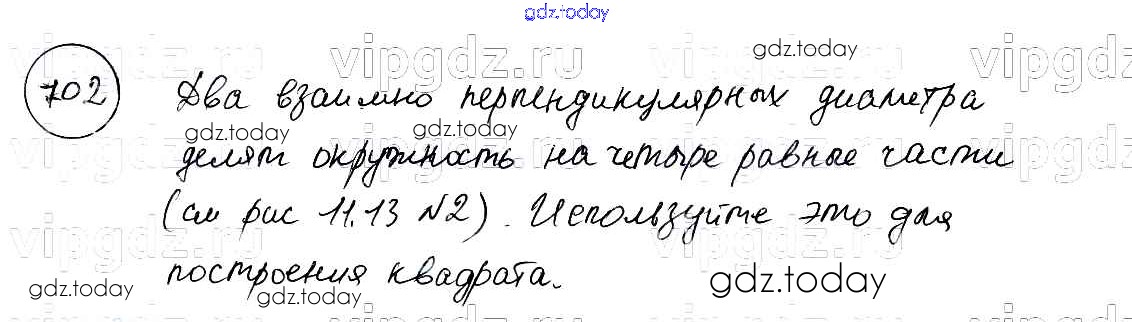 gdz.today
vipgdz.ru vipgdz.ru vipgdz.ru
gdz.today
702 Два взаимно перпендикулярных диаметра
gdz.today gdz.today
делят окружность на четыре равные части
vipgdz.ru vipgdz.ru vipgdz.ru
(см рис 11.13 №2). Используйте это для
vipgdz.ru vipgdz.ru vipgdz.ru
построения квадрата.
gdz.today gdz.today gdz.today